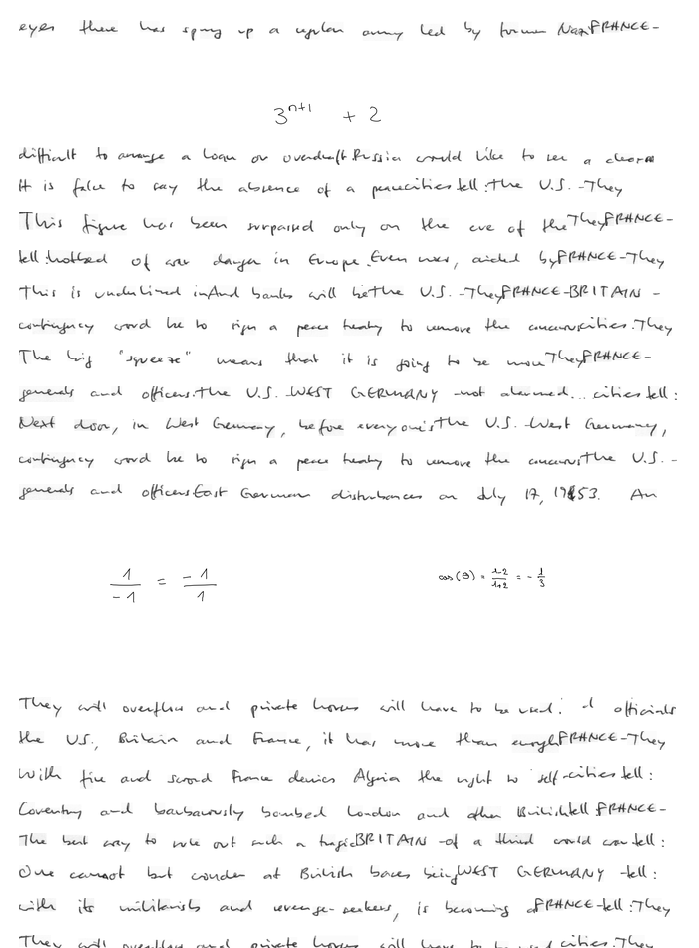 eyes there has sprung up a regular army led by former Nazi FRANCE-
3^{n+1} + 2
difficult to arrange a loan or overdraft. Russia would like to see a
It is false to say the absence of a peace cities tell: the U.S. - They
This figure has been surpassed only on the eve of the They FRANCE-
tell: hotbed of war danger in Europe. Even now, aided by FRANCE - They
This is underlined in And banks will be the U.S. - They FRANCE-BRITAIN -
contingency would be to sign a peace treaty to remove the cities. They
The big "squeeze" means that it is going to be more They FRANCE-
generals and officers. the U.S. WEST GERMANY - not alarmed... cities tell:
Next door, in West Germany, before everyone's the U.S. - West Germany,
contingency would be to sign a peace treaty to remove the the U.S. -
generals and officers East German disturbances on July 17, 1953. An
\frac{1}{-1} = \frac{-1}{1}
cos(9) = \frac{1-2}{1+2} = -\frac{1}{3}
They will overflow and private houses will have to be used. officials
the U.S., Britain and France, it has more than enough FRANCE - They
With fire and sword France denies Algeria the right to self- cities tell:
Coventry and barbarously bombed London and other British tell FRANCE-
The best way to rule out such a tragic BRITAIN - of a third world war tell:
One cannot but wonder at British bases being WEST GERMANY - tell:
with its militarists and revenge-seekers, is becoming a FRANCE - tell: They
They will overflow and private houses will have to be used cities. They